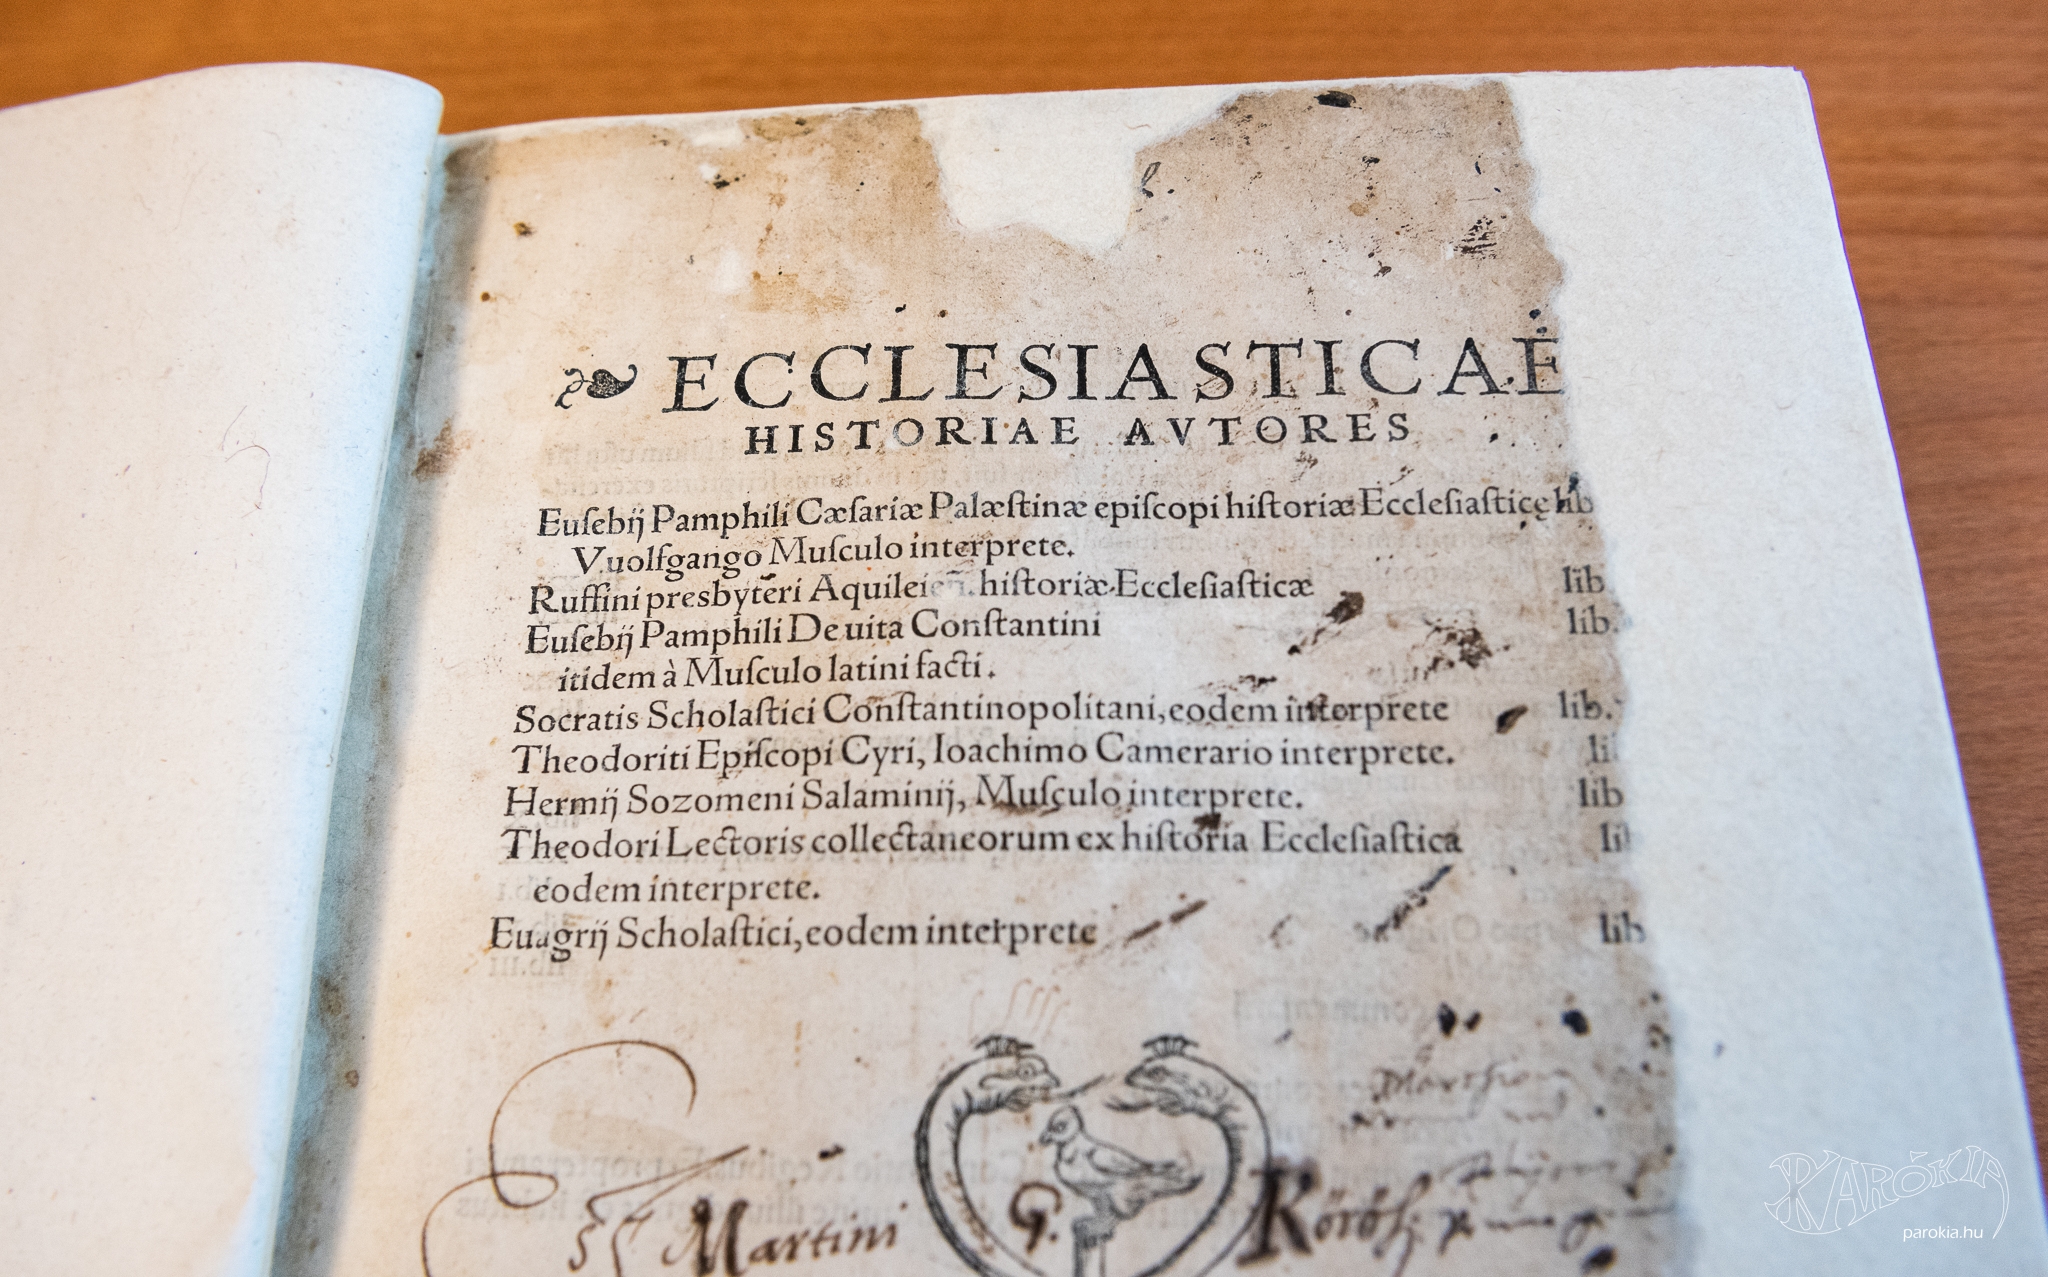 ECCLESIASTICAE
HISTORIAE AVTORES
Euſebij Pamphili Cæſariæ Palæſtinæ epiſcopi hiſtoriæ Eccleſiaſticę lib
Vuolfgango Muſculo interprete.
Ruffini presbyteri Aquileien. hiſtoriæ Eccleſiaſticæ lib
Euſebij Pamphili De uita Conſtantini lib.
itidem à Muſculo latini facti.
Socratis Scholaſtici Conſtantinopolitani, eodem interprete lib.
Theodoriti Epiſcopi Cyri, Ioachimo Camerario interprete. li
Hermij Sozomeni Salaminij, Muſculo interprete. lib
Theodori Lectoris collectaneorum ex hiſtoria Eccleſiaſtica li
eodem interprete.
Euagrij Scholaſtici, eodem interprete lib
Martini G. Körösſ
PARÓKIA
parokia.hu